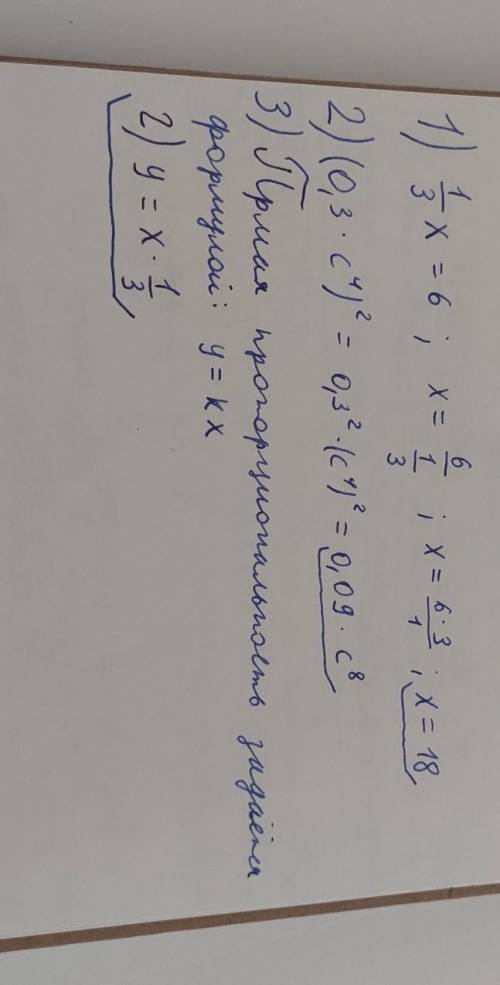 1) 1/3 x = 6 ; x = 6/(1/3) ; x = 6·3/1 ; x = 18
2) (0,3 · c⁴)² = 0,3² · (c⁴)² = 0,09 · c⁸
3) Прмая пропорциональность задаётся
формулой: y = kx
2) y = x · 1/3